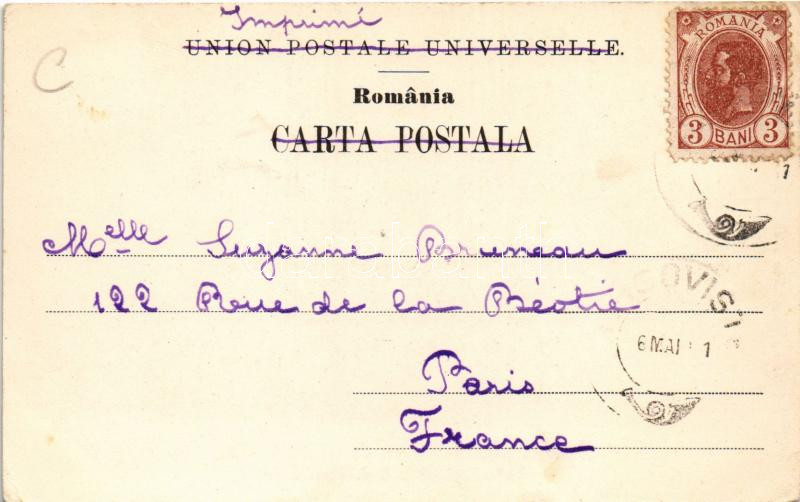 Imprimé
UNION POSTALE UNIVERSELLE.
România
CARTA POSTALA
ROMANIA
3 BANI 3
Melle Suzanne Bruneau
122 Rue de la Béotie
OVIS
6 MAI 1
Paris
France
C